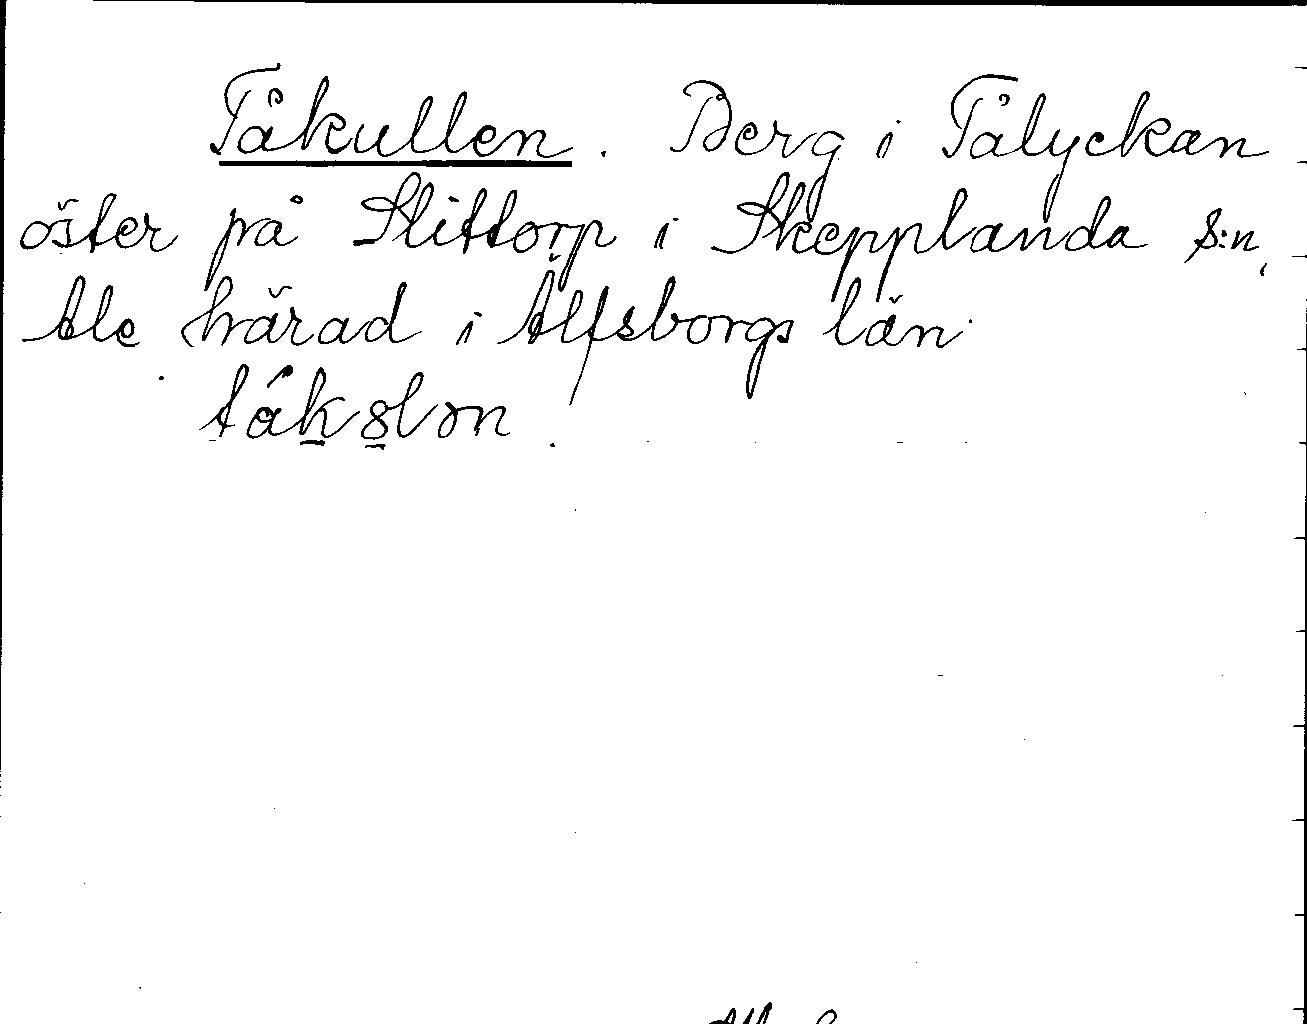 Tåkullen. Berg i Tålyckan
öster på Slittorp i Skepplanda s:n,
Ale härad i Älfsborgs län.